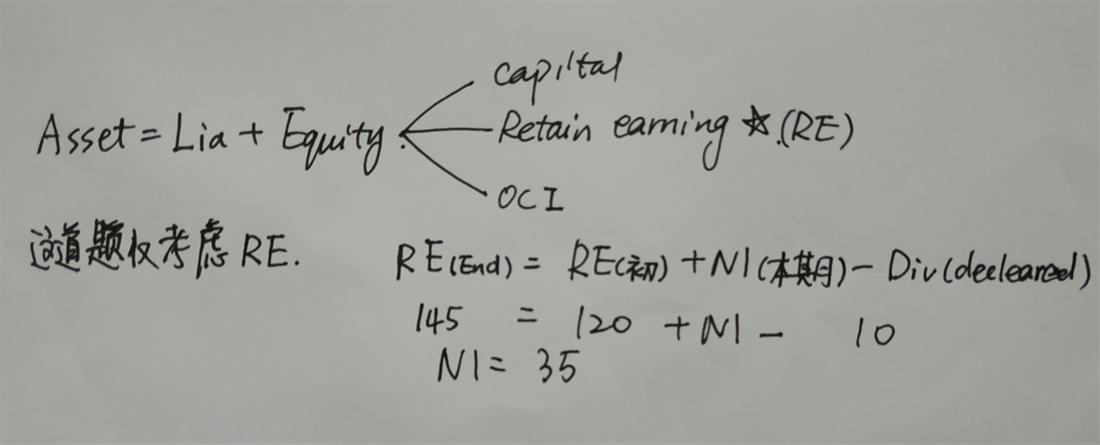 capital
Asset = Lia + Equity. Retain earning ☆.(RE)
OCI
这道题仅考虑 RE.
RE(End) = RE(初) + NI(本期) - Div(decleared)
145 = 120 + NI - 10
NI = 35